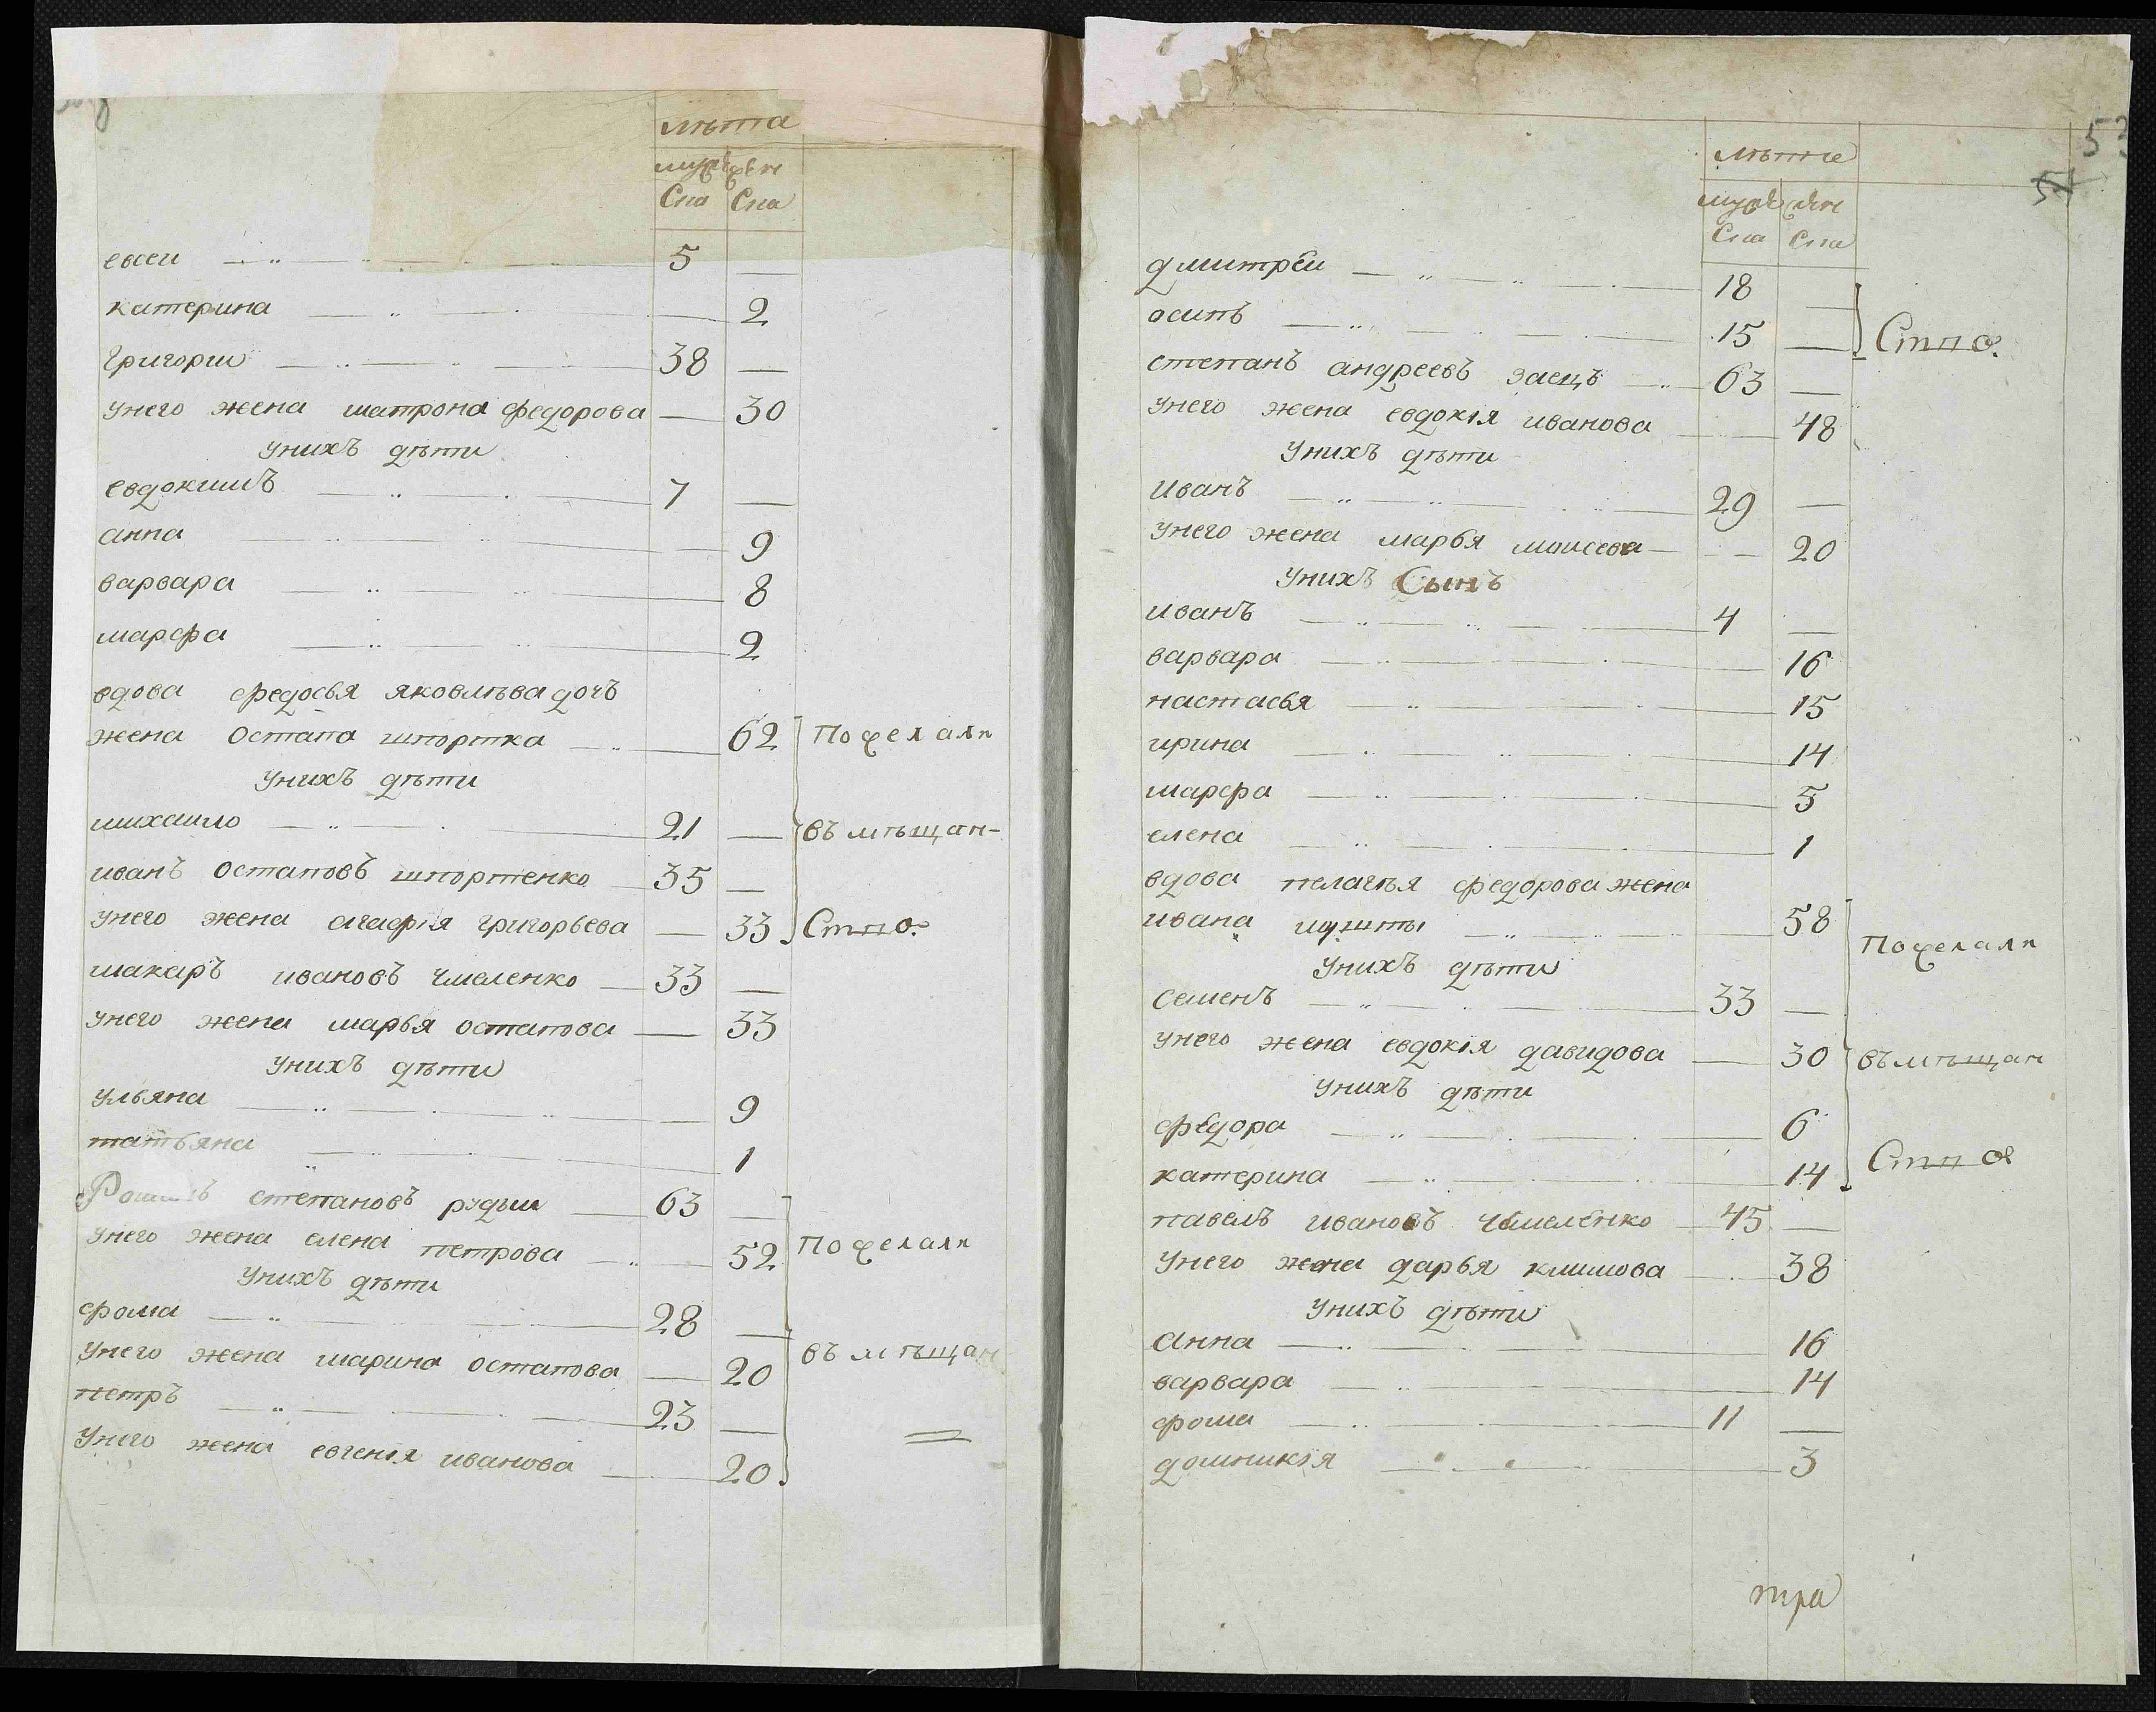 лѣта
муже жен
ска ска
евсеи 5
катерина 2
григории 38
унего жена матрона федорова 30
унихъ дѣти
евдокимъ 7
анна 9
варвара 8
марфа 2
вдова федосья яковлѣва дочъ
жена остапа шпортка 62 Пожелали
унихъ дѣти
михаило 21 въ мѣщан-
иванъ остаповъ шпортенко 35
унего жена агафія григорьева 33 Ство
макаръ ивановъ чмеленко 33
унего жена марья остапова 33
унихъ дѣти
ульяна 9
татьяна 1
степановъ рудыи 63
унего жена елена петрова 52 Пожелали
унихъ дѣти
фома 28
унего жена марина остапова 20 въ мѣщан
петръ 23
унего жена евгенія иванова 20
53
54
лѣта
муже жен
ска ска
дмитреи 18
осипъ 15 Ство
степанъ андреевъ заецъ 63
унего жена евдокія иванова 48
унихъ дѣти
иванъ 29
унего жена марья моисеева 20
унихъ Сынъ
иванъ 4
варвара 16
настасья 15
ирина 14
марфа 5
елена 1
вдова пелагѣя федорова жена
ивана 58 Пожелали
унихъ дѣти
семенъ 33
унего жена евдокія давидова 30 въ мѣщан
унихъ дѣти
федора 6
катерина 14 Ство
павелъ ивановъ чмеленко 45
унего жена дарья климова 38
унихъ дѣти
анна 16
варвара 14
фома 11
домникія 3